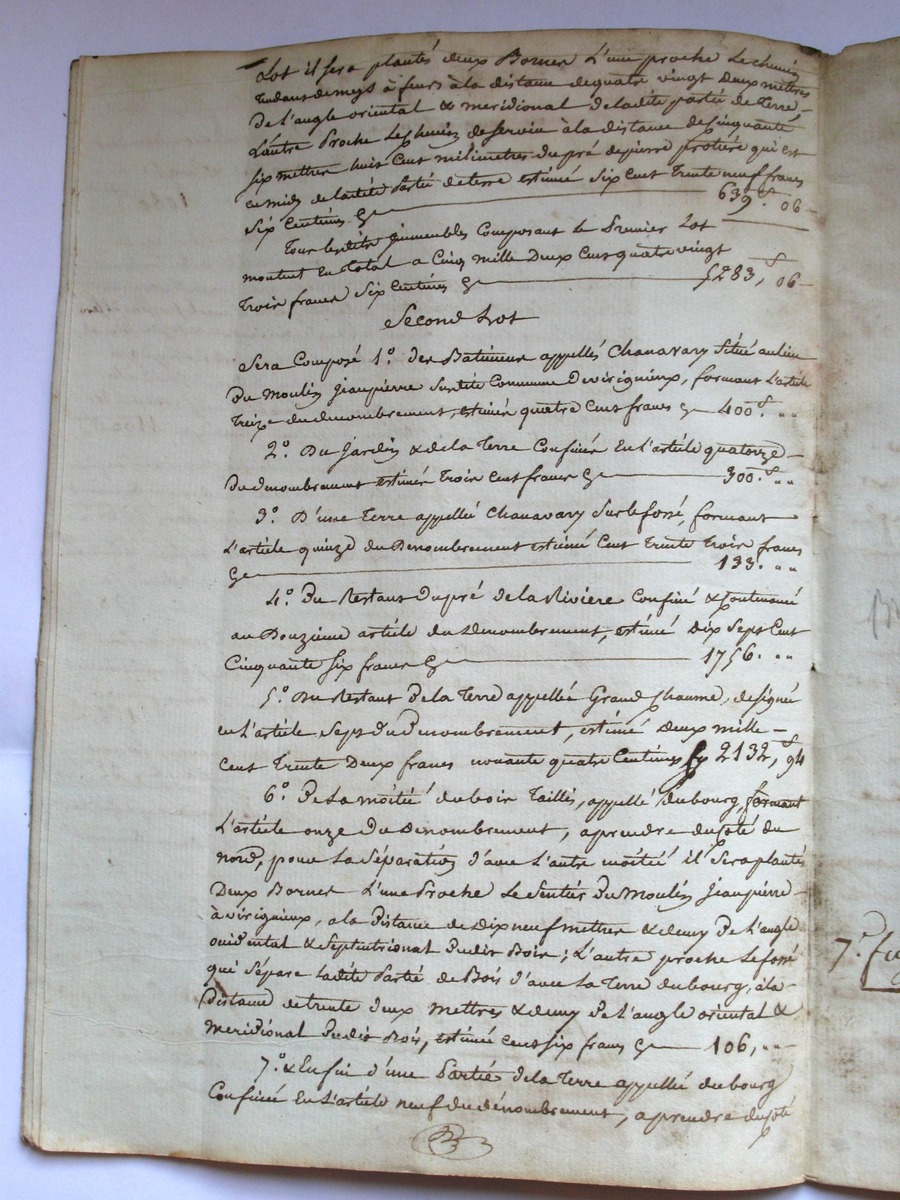 Lot il sera plantés deux Bornes L'une proche Le chemin
tendant de meys à feurs à la distance de quatre vingt deux mètres
De l'angle oriental & meridional de ladite partie de Terre
L'autre Proche Le chemin de servin à la distance de cinquante
six mettres huit Cent milimetres du pré de pierre protière qui est
au midi de ladite Partie de terre estimée Six Cent Trente neuf francs
Six Centimes 639.f 06
Tous lesdits immeubles Composant Le Premier Lot
montent En total a Cinq mille Deux Cent quatre vingt
Trois francs Six Centimes 5283,f 06
Second Lot
Sera Composé 1.o Des Batimens appellés Chanavary Situé au lieu
Du Moulin Jeanpierre Susdite Commune De virigneux, formant L'article
Treize du denombrement, estimés quatre Cent francs 400.f " "
2.o Du Jardin & de la Terre Confinée En L'article quatorze
Du denombrement estimés Trois Cent francs 300.f " "
3.o D'une Terre appellée Chanavary Sur le fossé, formant
L'article quinze du Denombrement estimée Cent Trente Trois francs
133. " "
4.o Du Restant Du pré de la Rivière Confiné & Contenancé
au Douzième article du denombrement, estimé Dix Sept Cent
Cinquante Six francs 1756. " "
5.o Du Restant De la Terre appellée Grand Chaume, designée
en L'article Sept Du Denombrement, estimé Deux mille
Cent Trente Deux francs nonante quatre Centimes 2132,f 94
6.o De La moitié du bois Taillis, appellé Dubourg, formant
L'article onze Du denombrement, a prendre du Coté du
nord, pour La Séparation d'avec L'autre moitié il Sera plantés
Deux Bornes L'une Proche Le Sentier Du Moulin Jeanpierre
à virigneux, a la Distance de Dix neuf mettres & demy De L'angle
occidental & Septentrional Dudit Bois; L'autre proche Le fossé
qui Sépare Ladite Partie de Bois d'avec La Terre dubourg, à la
Distance de trente deux mettres & demy De L'angle oriental &
Meridional Dudit Bois, estimée Cent Six francs 106, " "
7.o & Enfin d'une Partie de la Terre appellée dubourg
Confinée En L'article neuf du dénombrement, a prendre du Coté
7.e